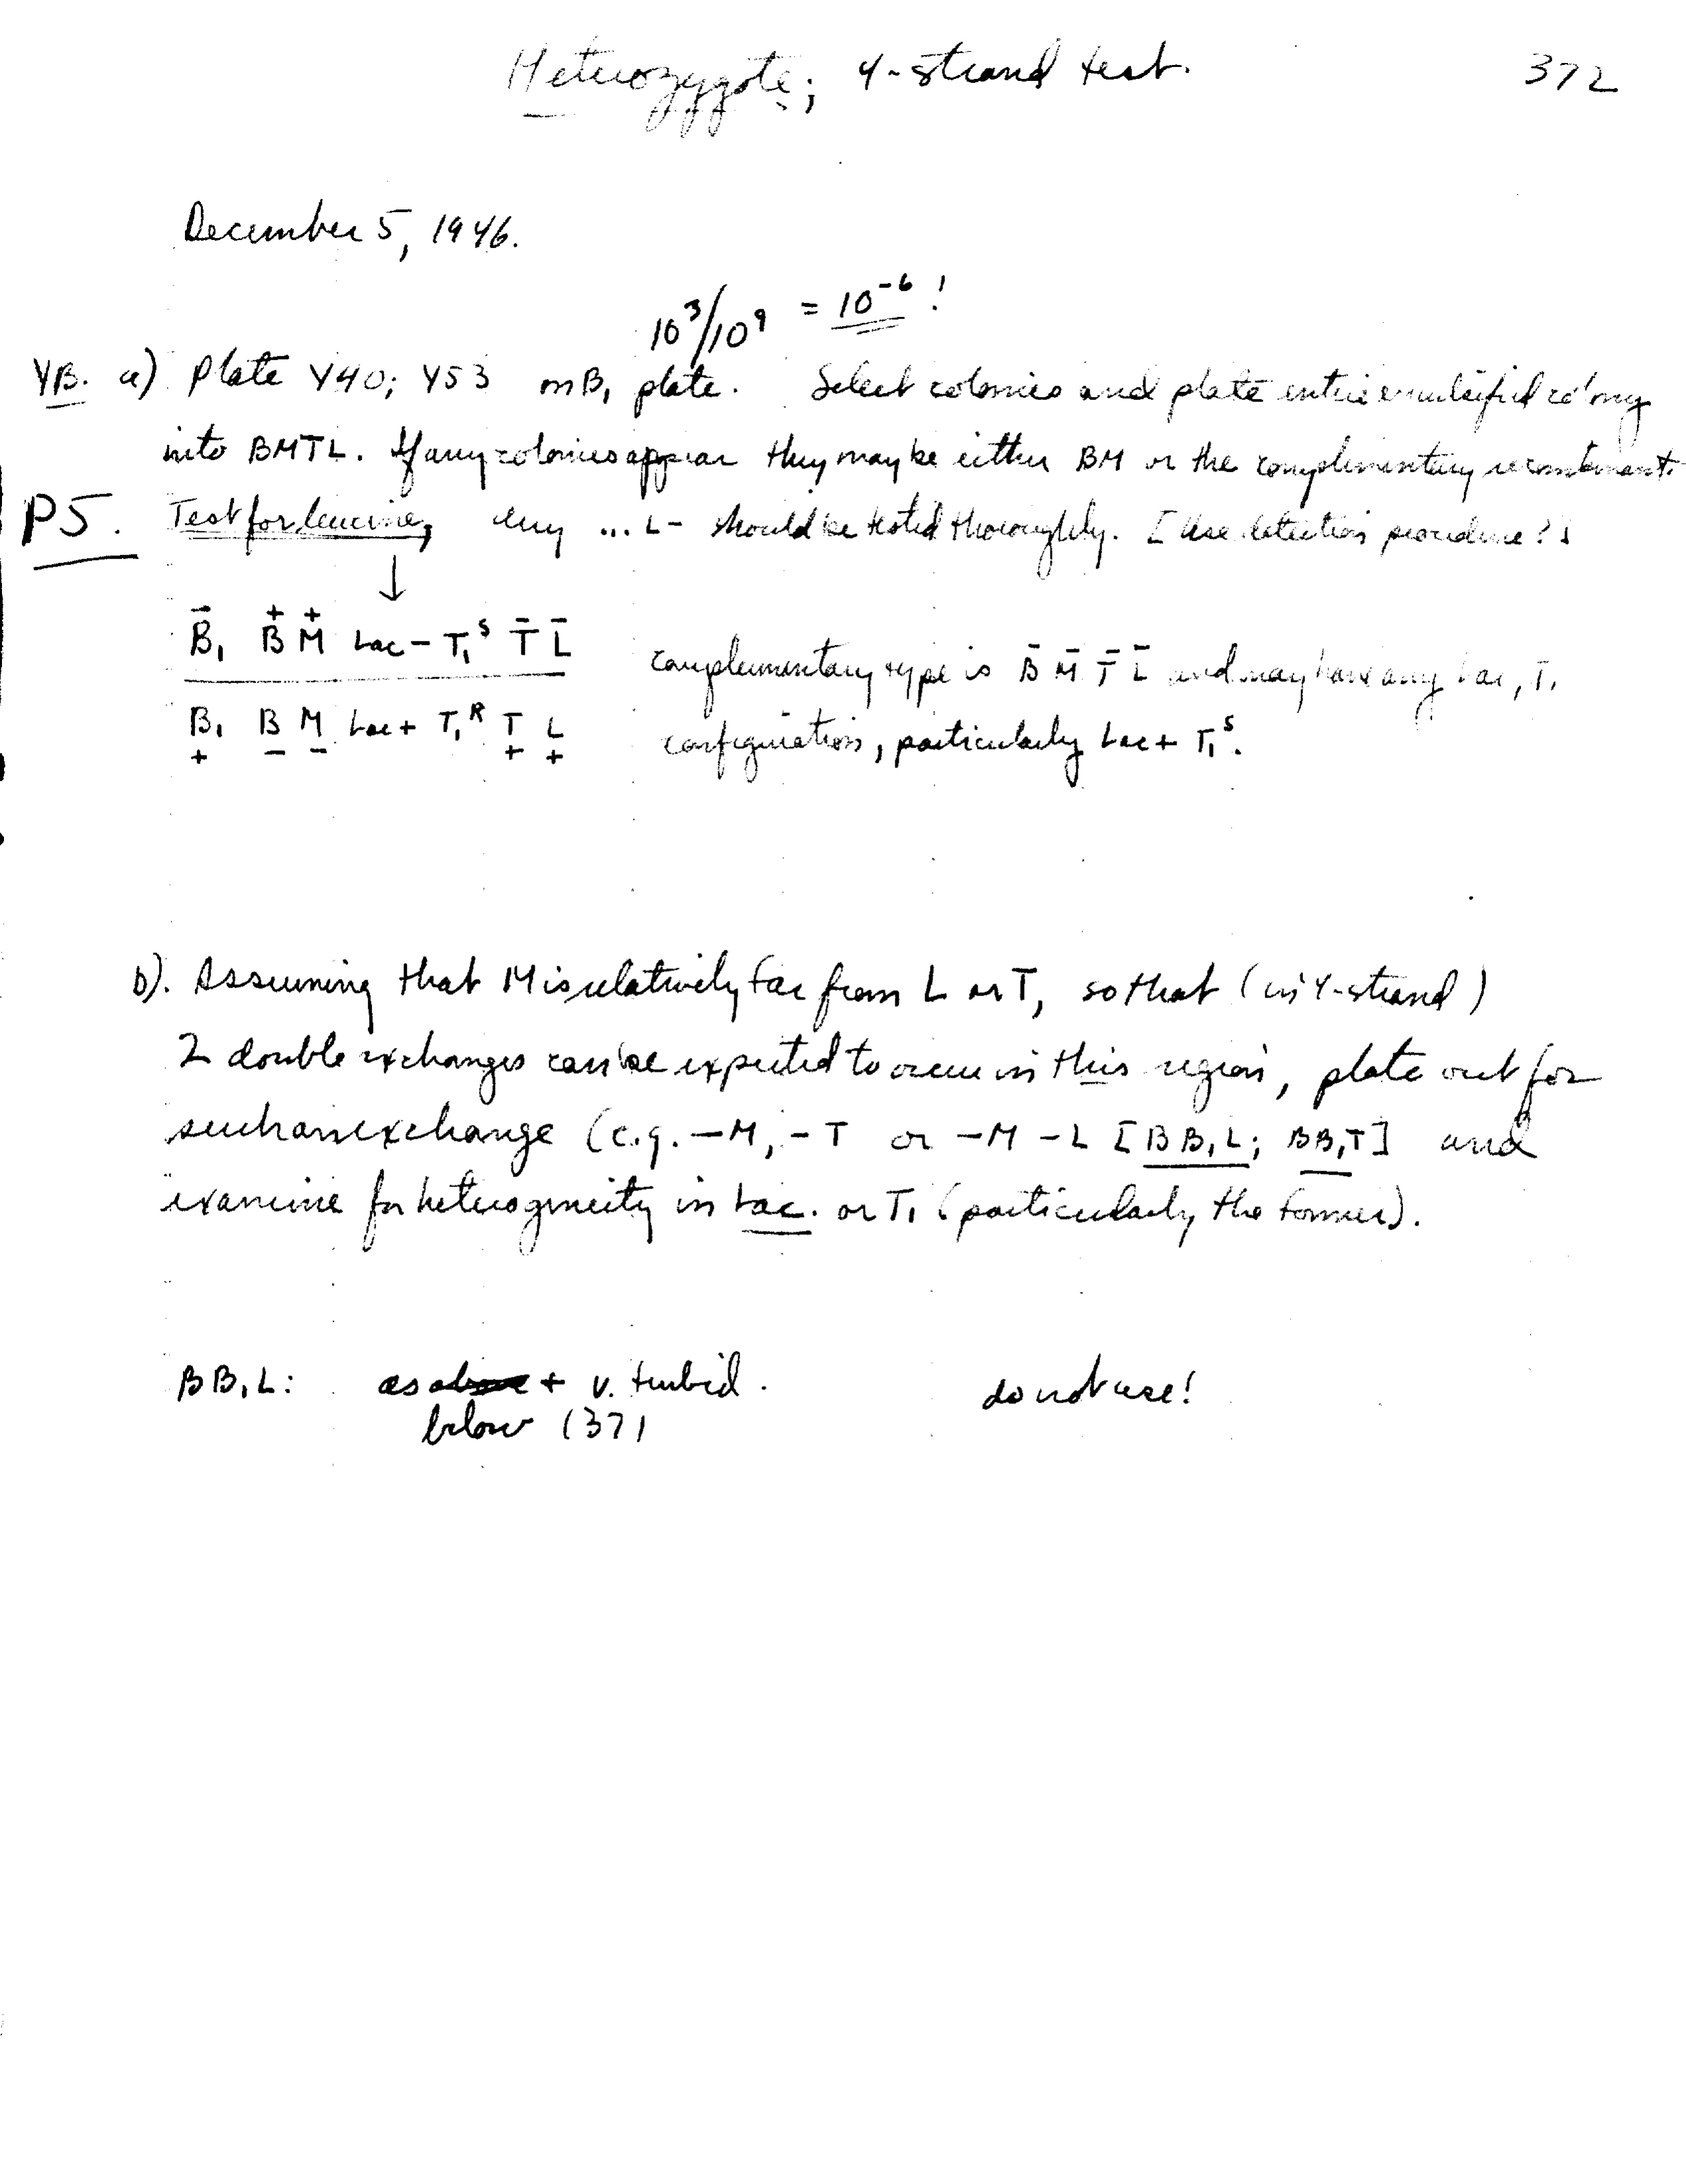 Heterozygote; 4-strand test. 372
December 5, 1946.
10³/10⁹ = 10⁻⁶ !
YB. a) Plate Y40; Y53 on B₁ plate. Select colonies and plate entire emulsified colony
into BMTL. If any colonies appear they may be either BM or the complementary recombinant.
P5. Test for leucine, any ... L- should be tested thoroughly. [Use detection procedure?]
↓
B̄₁ B⁺ M⁺ Lac- T₁ˢ T̄ L̄ complementary type is B̄ M̄ T̄ L̄ and may have any Lac, T₁
B₁ B M Lac+ T₁ᴿ T L configuration, particularly Lac+ T₁ˢ.
+ - - + +
b). Assuming that M is relatively far from L or T, so that (in 4-strand)
2 double exchanges can be expected to occur in this region, plate out for
such an exchange (e.g. -M, -T or -M -L [BB₁L; BB₁T] and
examine for heterogeneity in Lac. or T₁ (particularly the former).
BB₁L: as above + v. turbid. do not use!
below (371